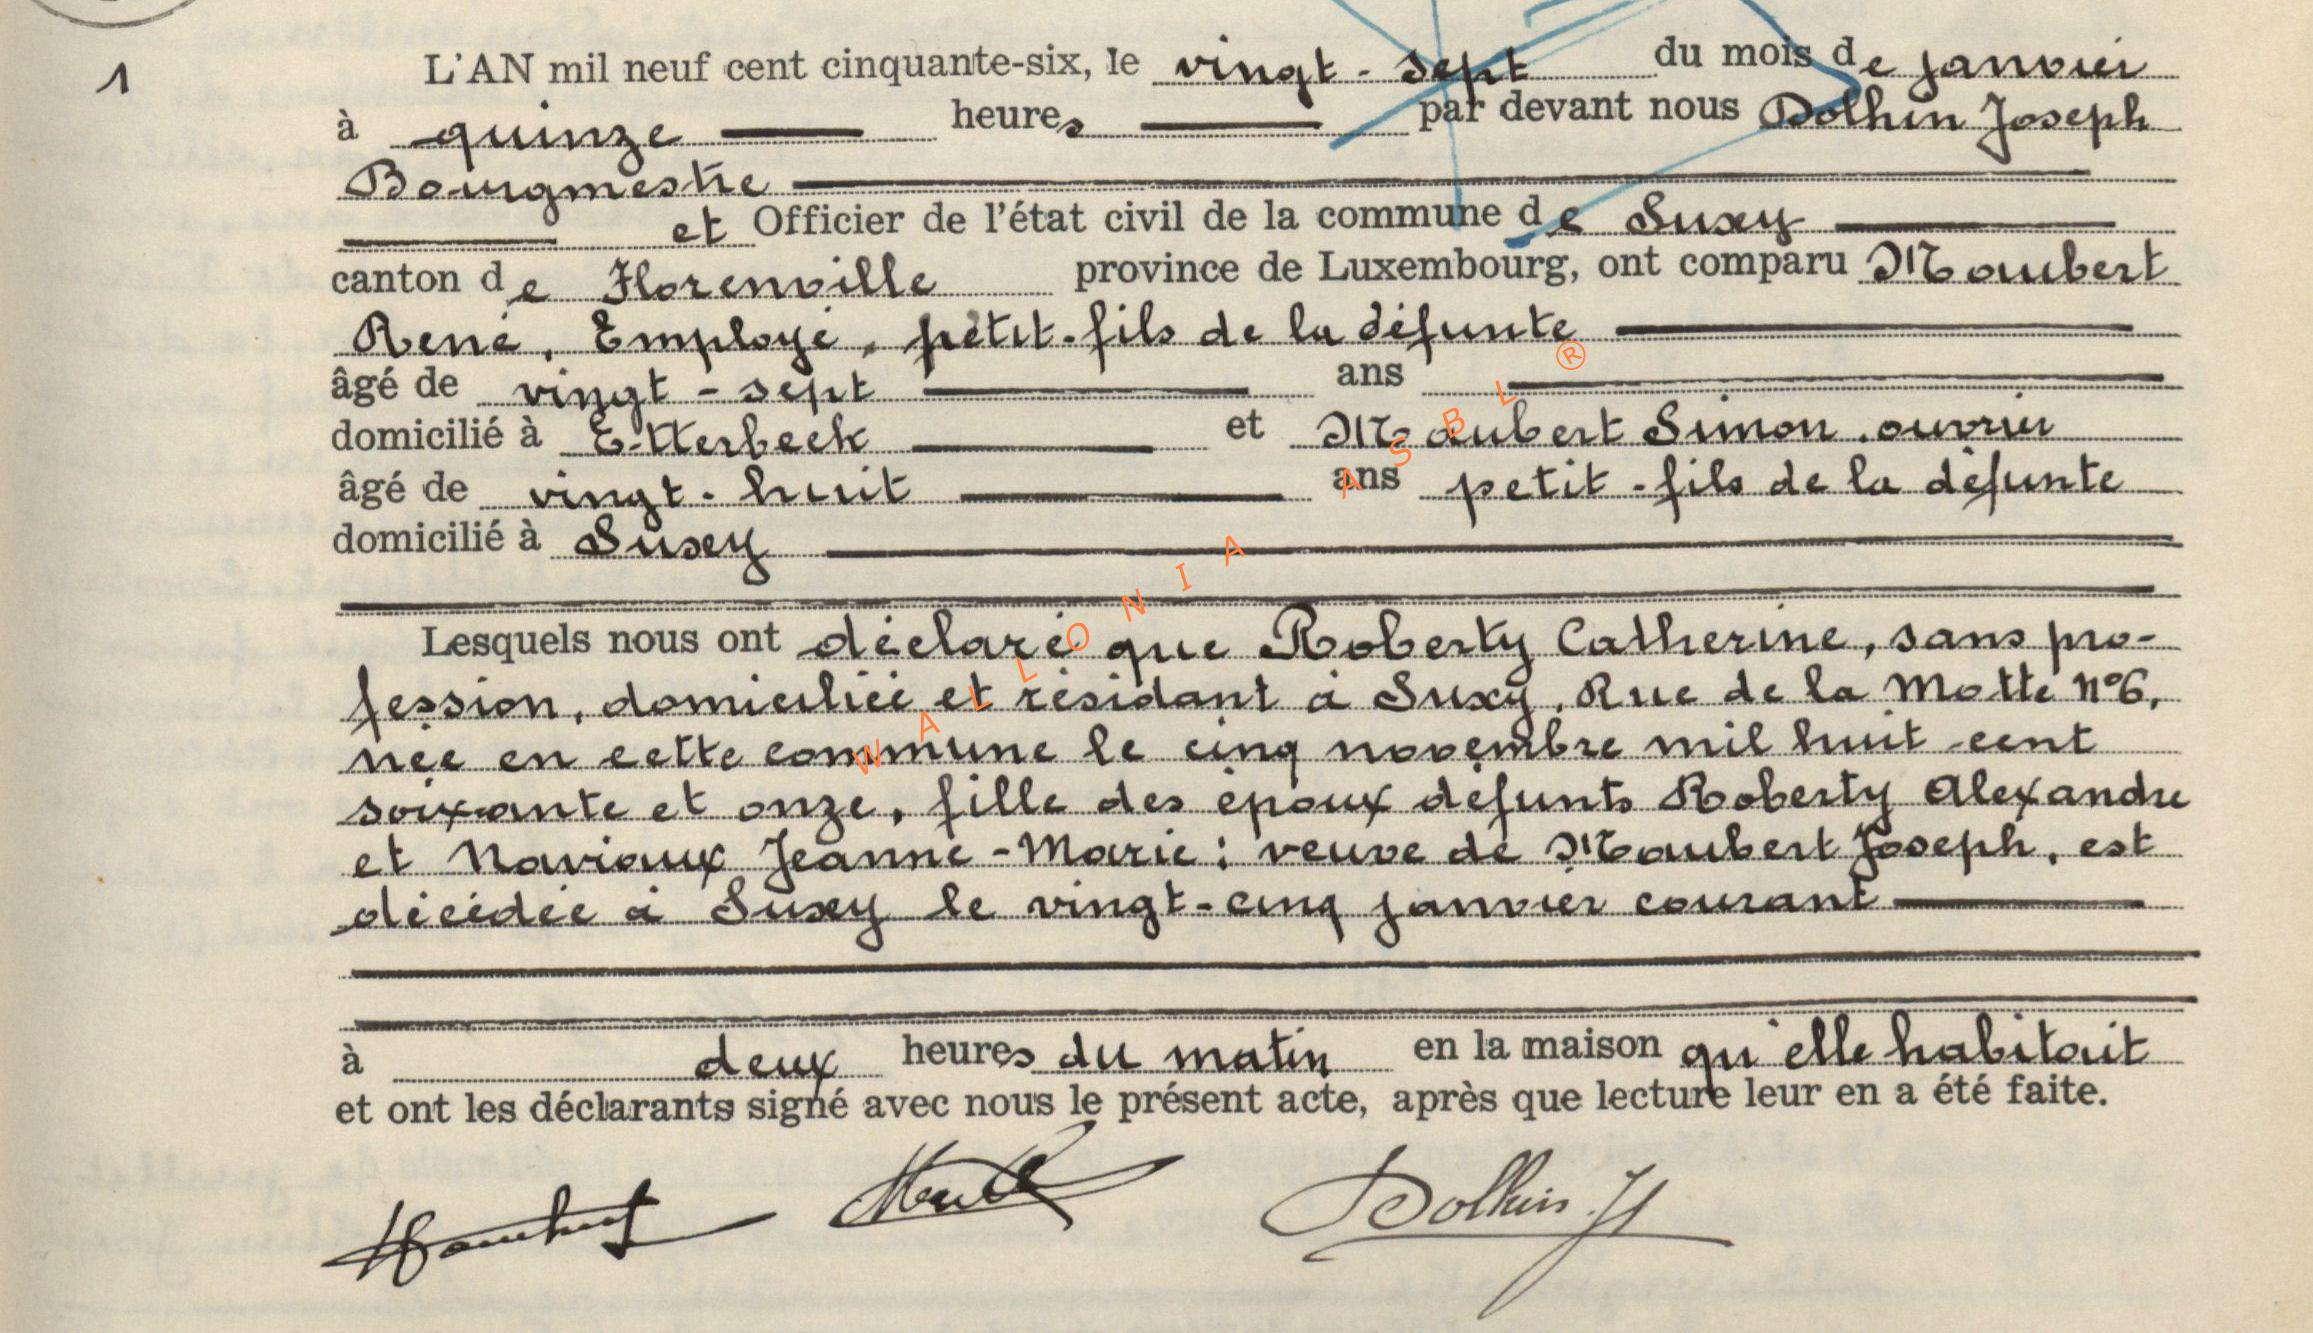 1
L'AN mil neuf cent cinquante-six, le vingt-sept du mois de janvier
à quinze heures par devant nous Dolhin Joseph
Bourgmestre
et Officier de l'état civil de la commune de Suxy
canton de Florenville province de Luxembourg, ont comparu Maubert
René, Employé, petit-fils de la défunte
âgé de vingt-sept ans
domicilié à Etterbeek et Maubert Simon, ouvrier
âgé de vingt-huit ans petit-fils de la défunte
domicilié à Suxy
Lesquels nous ont déclaré que Roberty Catherine, sans pro-
fession, domiciliée et résidant à Suxy, Rue de la Motte N°6,
née en cette commune le cinq novembre mil huit cent
soixante et onze, fille des époux défunts Roberty Alexandre
et Naviaux Jeanne-Marie ; veuve de Maubert Joseph, est
décédée à Suxy le vingt-cinq janvier courant
à deux heures du matin en la maison qu'elle habitait
et ont les déclarants signé avec nous le présent acte, après que lecture leur en a été faite.
Dolhin J
WALLONIA ASBL ®